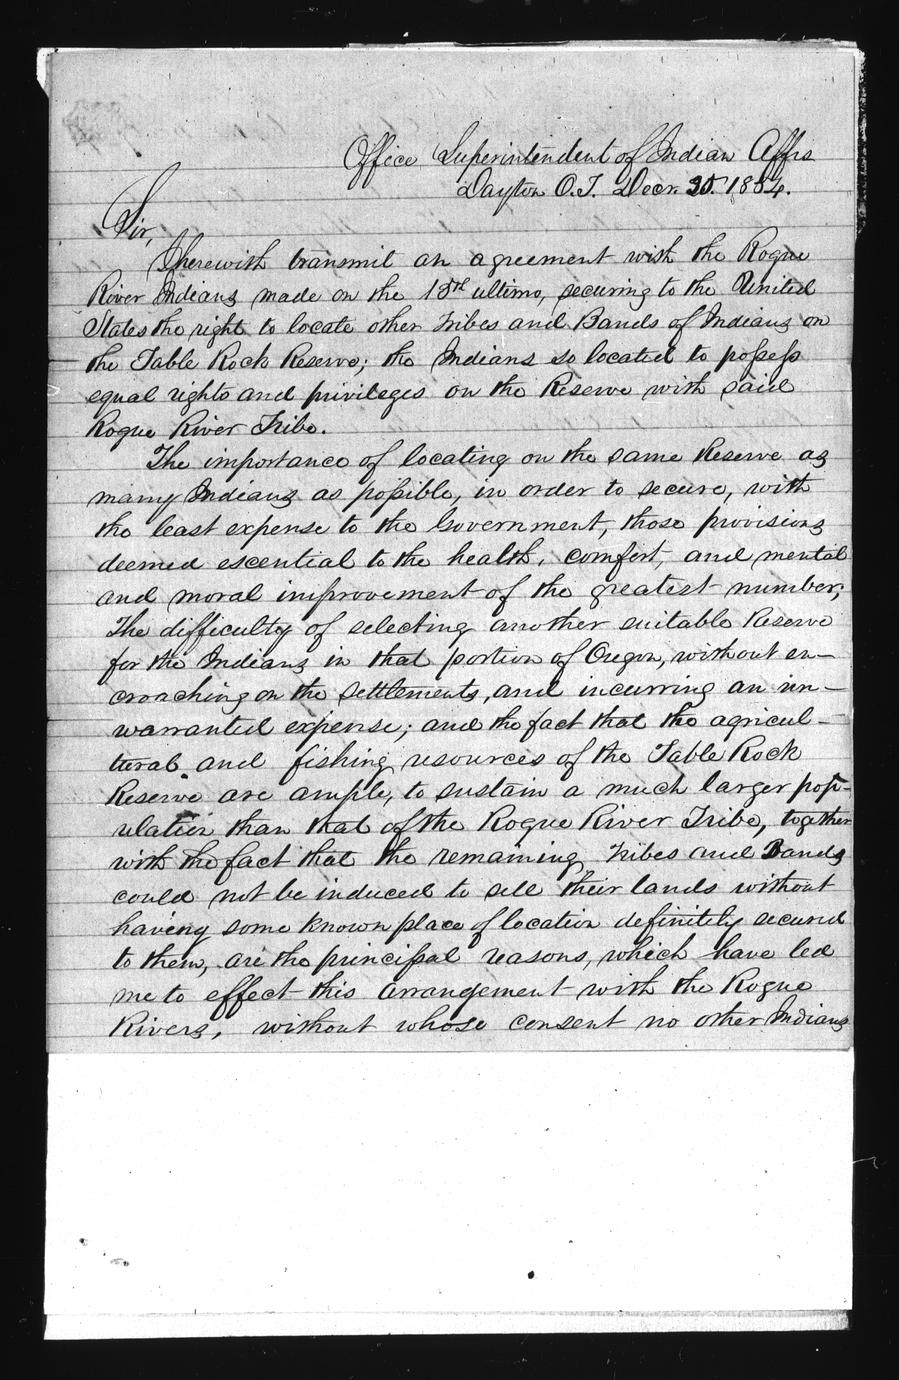 Office Superintendent of Indian Affrs
Dayton O.T. Decr. 25. 1854.
Sir,
I herewith transmit an agreement with the Rogue
River Indians made on the 15th ultimo, securing to the United
States the right to locate other Tribes and Bands of Indians on
the Table Rock Reserve; the Indians so located to possess
equal rights and privileges on the Reserve with said
Rogue River Tribe.
The importance of locating on the same Reserve as
many Indians as possible, in order to secure, with
the least expense to the Government, those provisions
deemed escential to the health, comfort, and mental
and moral improvement of the greatest number;
The difficulty of selecting another suitable Reserve
for the Indians in that portion of Oregon, without en-
croaching on the settlements, and incurring an un-
warranted expense; and the fact that the agricul-
tural and fishing resources of the Table Rock
Reserve are ample, to sustain a much larger pop-
ulation than that of the Rogue River Tribe, together
with the fact that the remaining Tribes and Bands
could not be induced to sell their lands without
having some known place of location definitely secured
to them, are the principal reasons, which have led
me to effect this arrangement with the Rogue
Rivers, without whose consent no other Indians